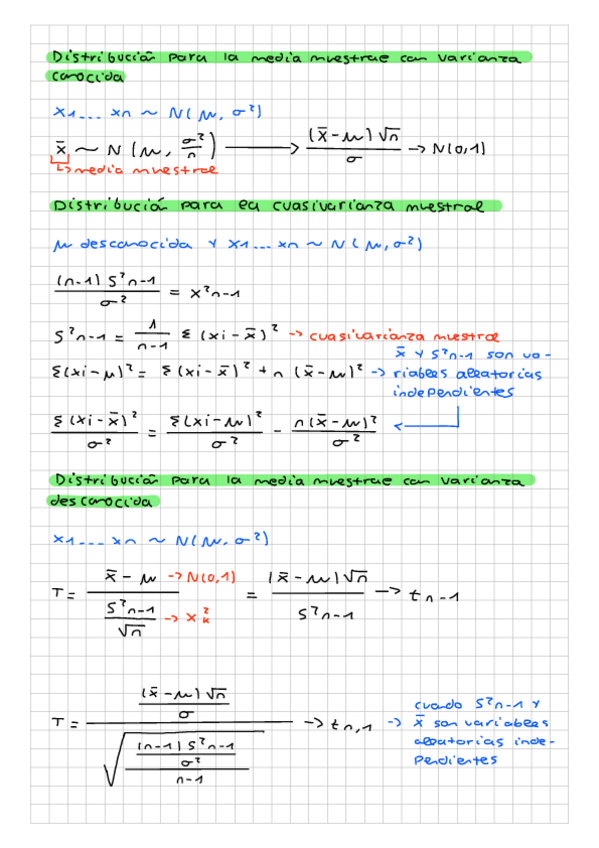 Distribución para la media muestral con varianza
conocida
x1... xn ~ N(μ, σ²)
x̄ ~ N(μ, σ²/n) → (x̄-μ)√n / σ → N(0,1)
↳ media muestral
Distribución para la cuasivarianza muestral
μ desconocida y x1... xn ~ N(μ, σ²)
(n-1) S²n-1 / σ² = x²n-1
S²n-1 = 1/n-1 Σ (xi - x̄)² → cuasivarianza muestral
Σ(xi-μ)² = Σ(xi-x̄)² + n (x̄-μ)² → x̄ y S²n-1 son va-
riables aleatorias
independientes
Σ(xi-x̄)² / σ² = Σ(xi-μ)² / σ² - n(x̄-μ)² / σ² ←
Distribución para la media muestral con varianza
desconocida
x1... xn ~ N(μ, σ²)
T = x̄ - μ → N(0,1) / S²n-1 / √n → x²k = (x̄-μ)√n / S²n-1 → tn-1
T = (x̄-μ)√n / σ / √((n-1) S²n-1 / σ² / n-1) → tn,1 → cuando S²n-1 y
x̄ son variables
aleatorias inde-
pendientes